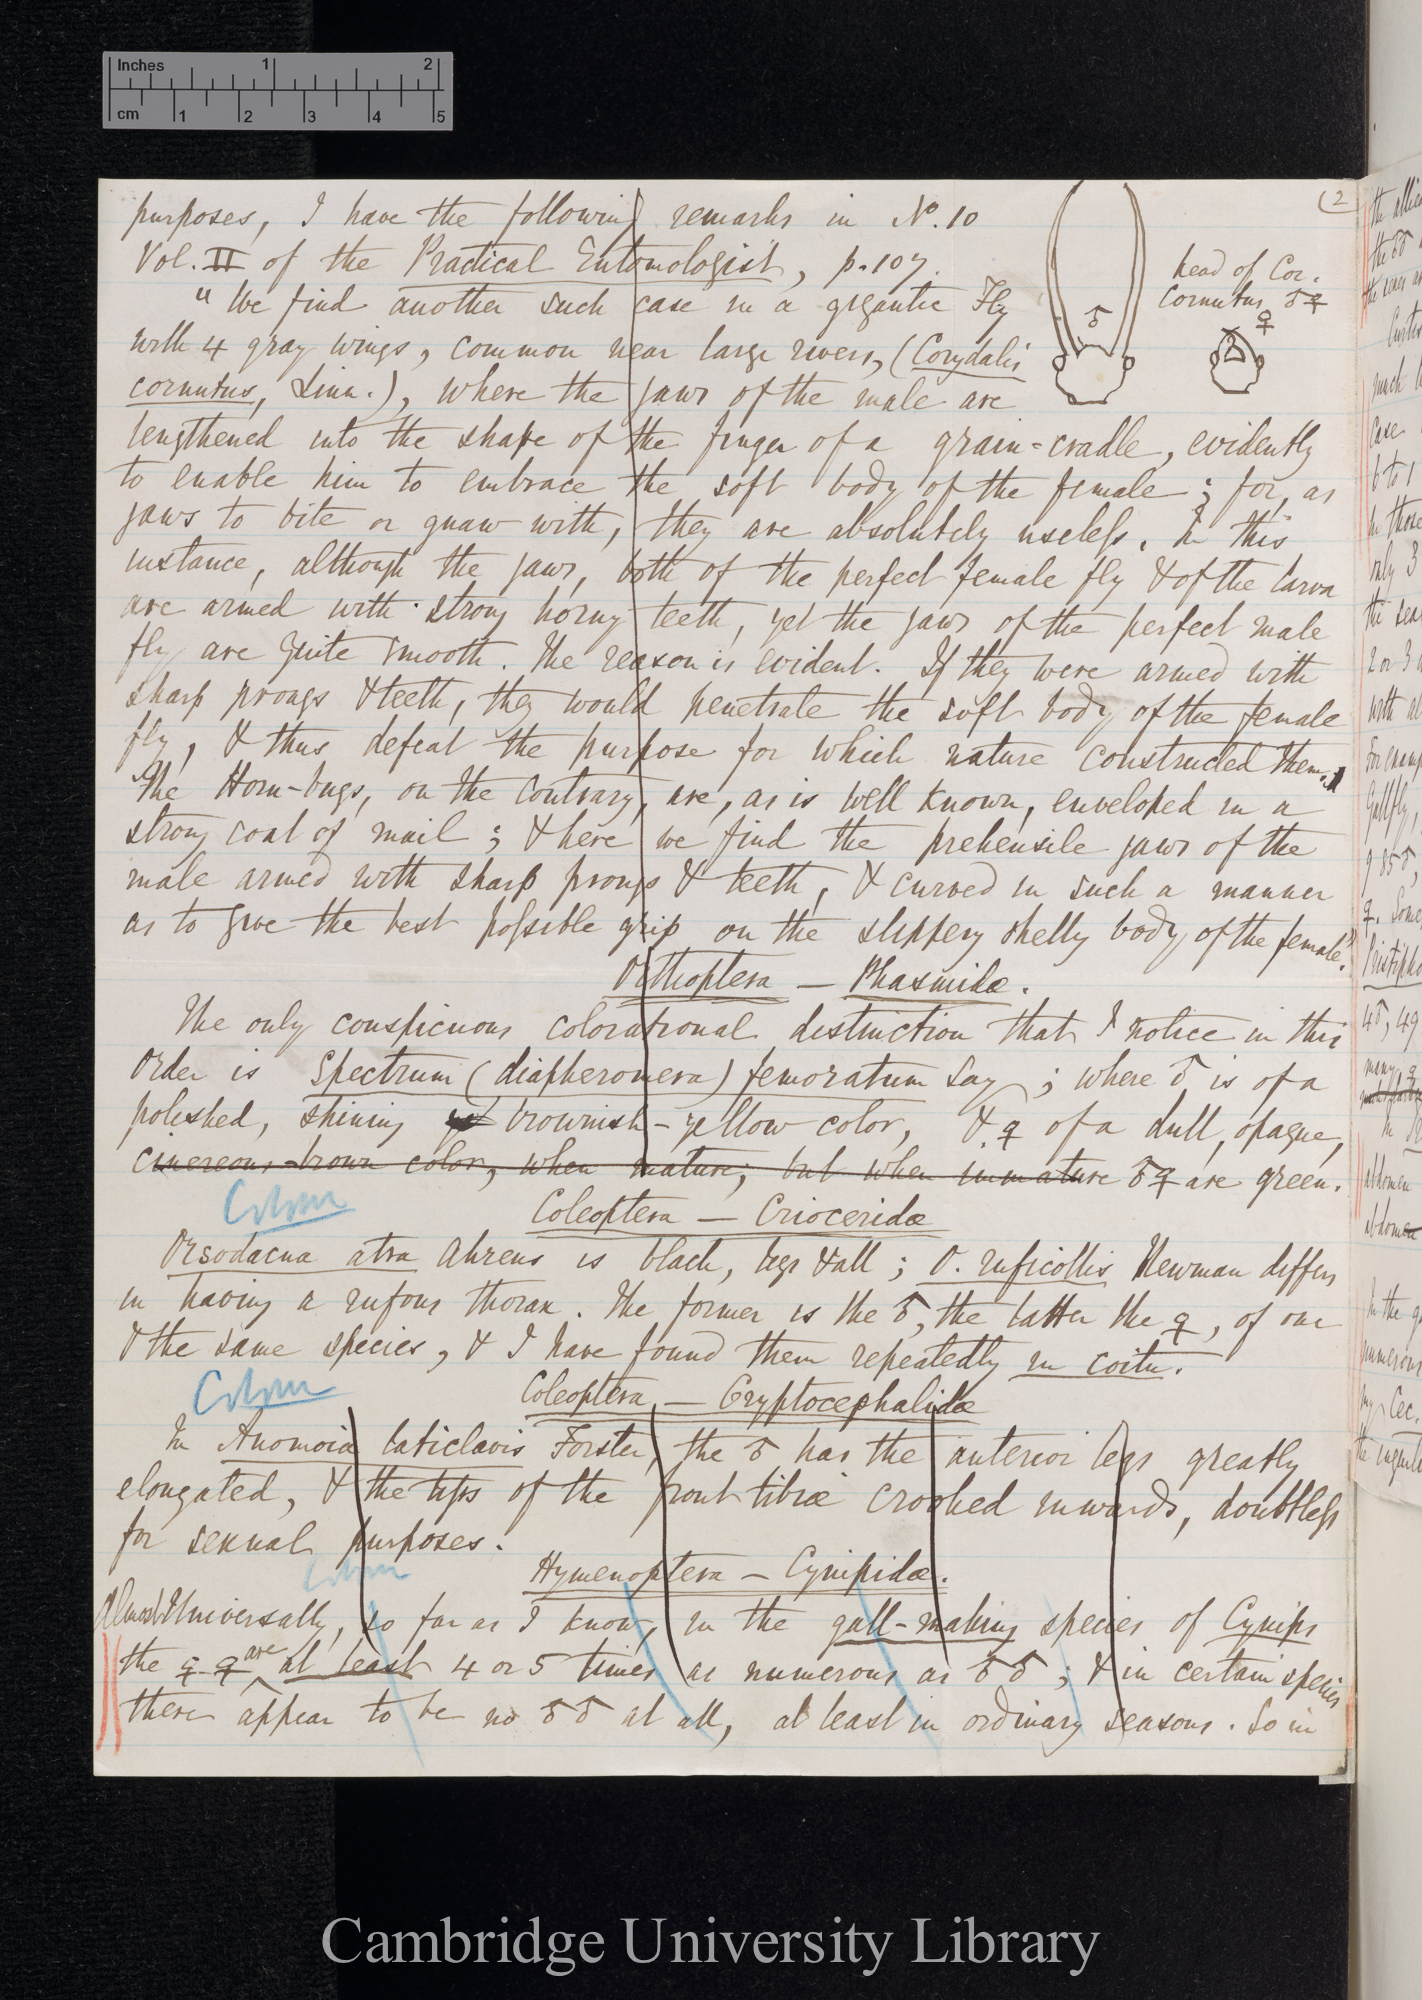 Inches 1 2
cm 1 2 3 4 5
(2
purposes, I have the following remarks in No. 10
Vol. II of the Practical Entomologist, p. 107.
"We find another such case in a gigantic Fly
with 4 gray wings, common near large rivers, (Corydalis
cornutus, Linn.), where the jaws of the male are
head of Cor.
Cornutus, ♂ ♀
♂
♀
lengthened into the shape of the finger of a grain-cradle, evidently
to enable him to embrace the soft body of the female; for, as
jaws to bite or gnaw with, they are absolutely useless. In this
instance, although the jaws, both of the perfect female fly & of the larva
are armed with strong horny teeth, yet the jaws of the perfect male
fly are quite smooth. The reason is evident. If they were armed with
sharp prongs & teeth, they would penetrate the soft body of the female
fly, & thus defeat the purpose for which nature constructed them.
"The Horn-bugs, on the contrary, are, as is well known, enveloped in a
strong coat of mail; & here we find the prehensile jaws of the
male armed with sharp prongs & teeth, & curved in such a manner
as to give the best possible grip on the slippery shelly body of the female."
Orthoptera — Phasmidæ.
The only conspicuous colorational distinction that I notice in this
Order is Spectrum (diapheromera) femoratum Say; where ♂ is of a
polished, shining brownish-yellow color, & ♀ of a dull, opaque,
cinereous-brown color, when mature; but when immature ♂ ♀ are green.
Colour
Coleoptera — Crioceridæ
Orsodacna atra Ahrens is black, legs & all; O. ruficollis Newman differs
in having a rufous thorax. The former is the ♂, the latter the ♀, of one
& the same species, & I have found them repeatedly in coitu.
Colour
Coleoptera — Cryptocephalidæ
In Anomoia laticlavis Forster, the ♂ has the anterior legs greatly
elongated, & the tips of the front tibiæ crooked inwards, doubtless
for sexual purposes.
Colour
Hymenoptera — Cynipidæ.
Almost Universally, so far as I know, in the gall-making species of Cynips
the ♀ ♀ are at least 4 or 5 times as numerous as ♂ ♂; & in certain species
there appear to be no ♂ ♂ at all, at least in ordinary seasons. So in
Cambridge University Library